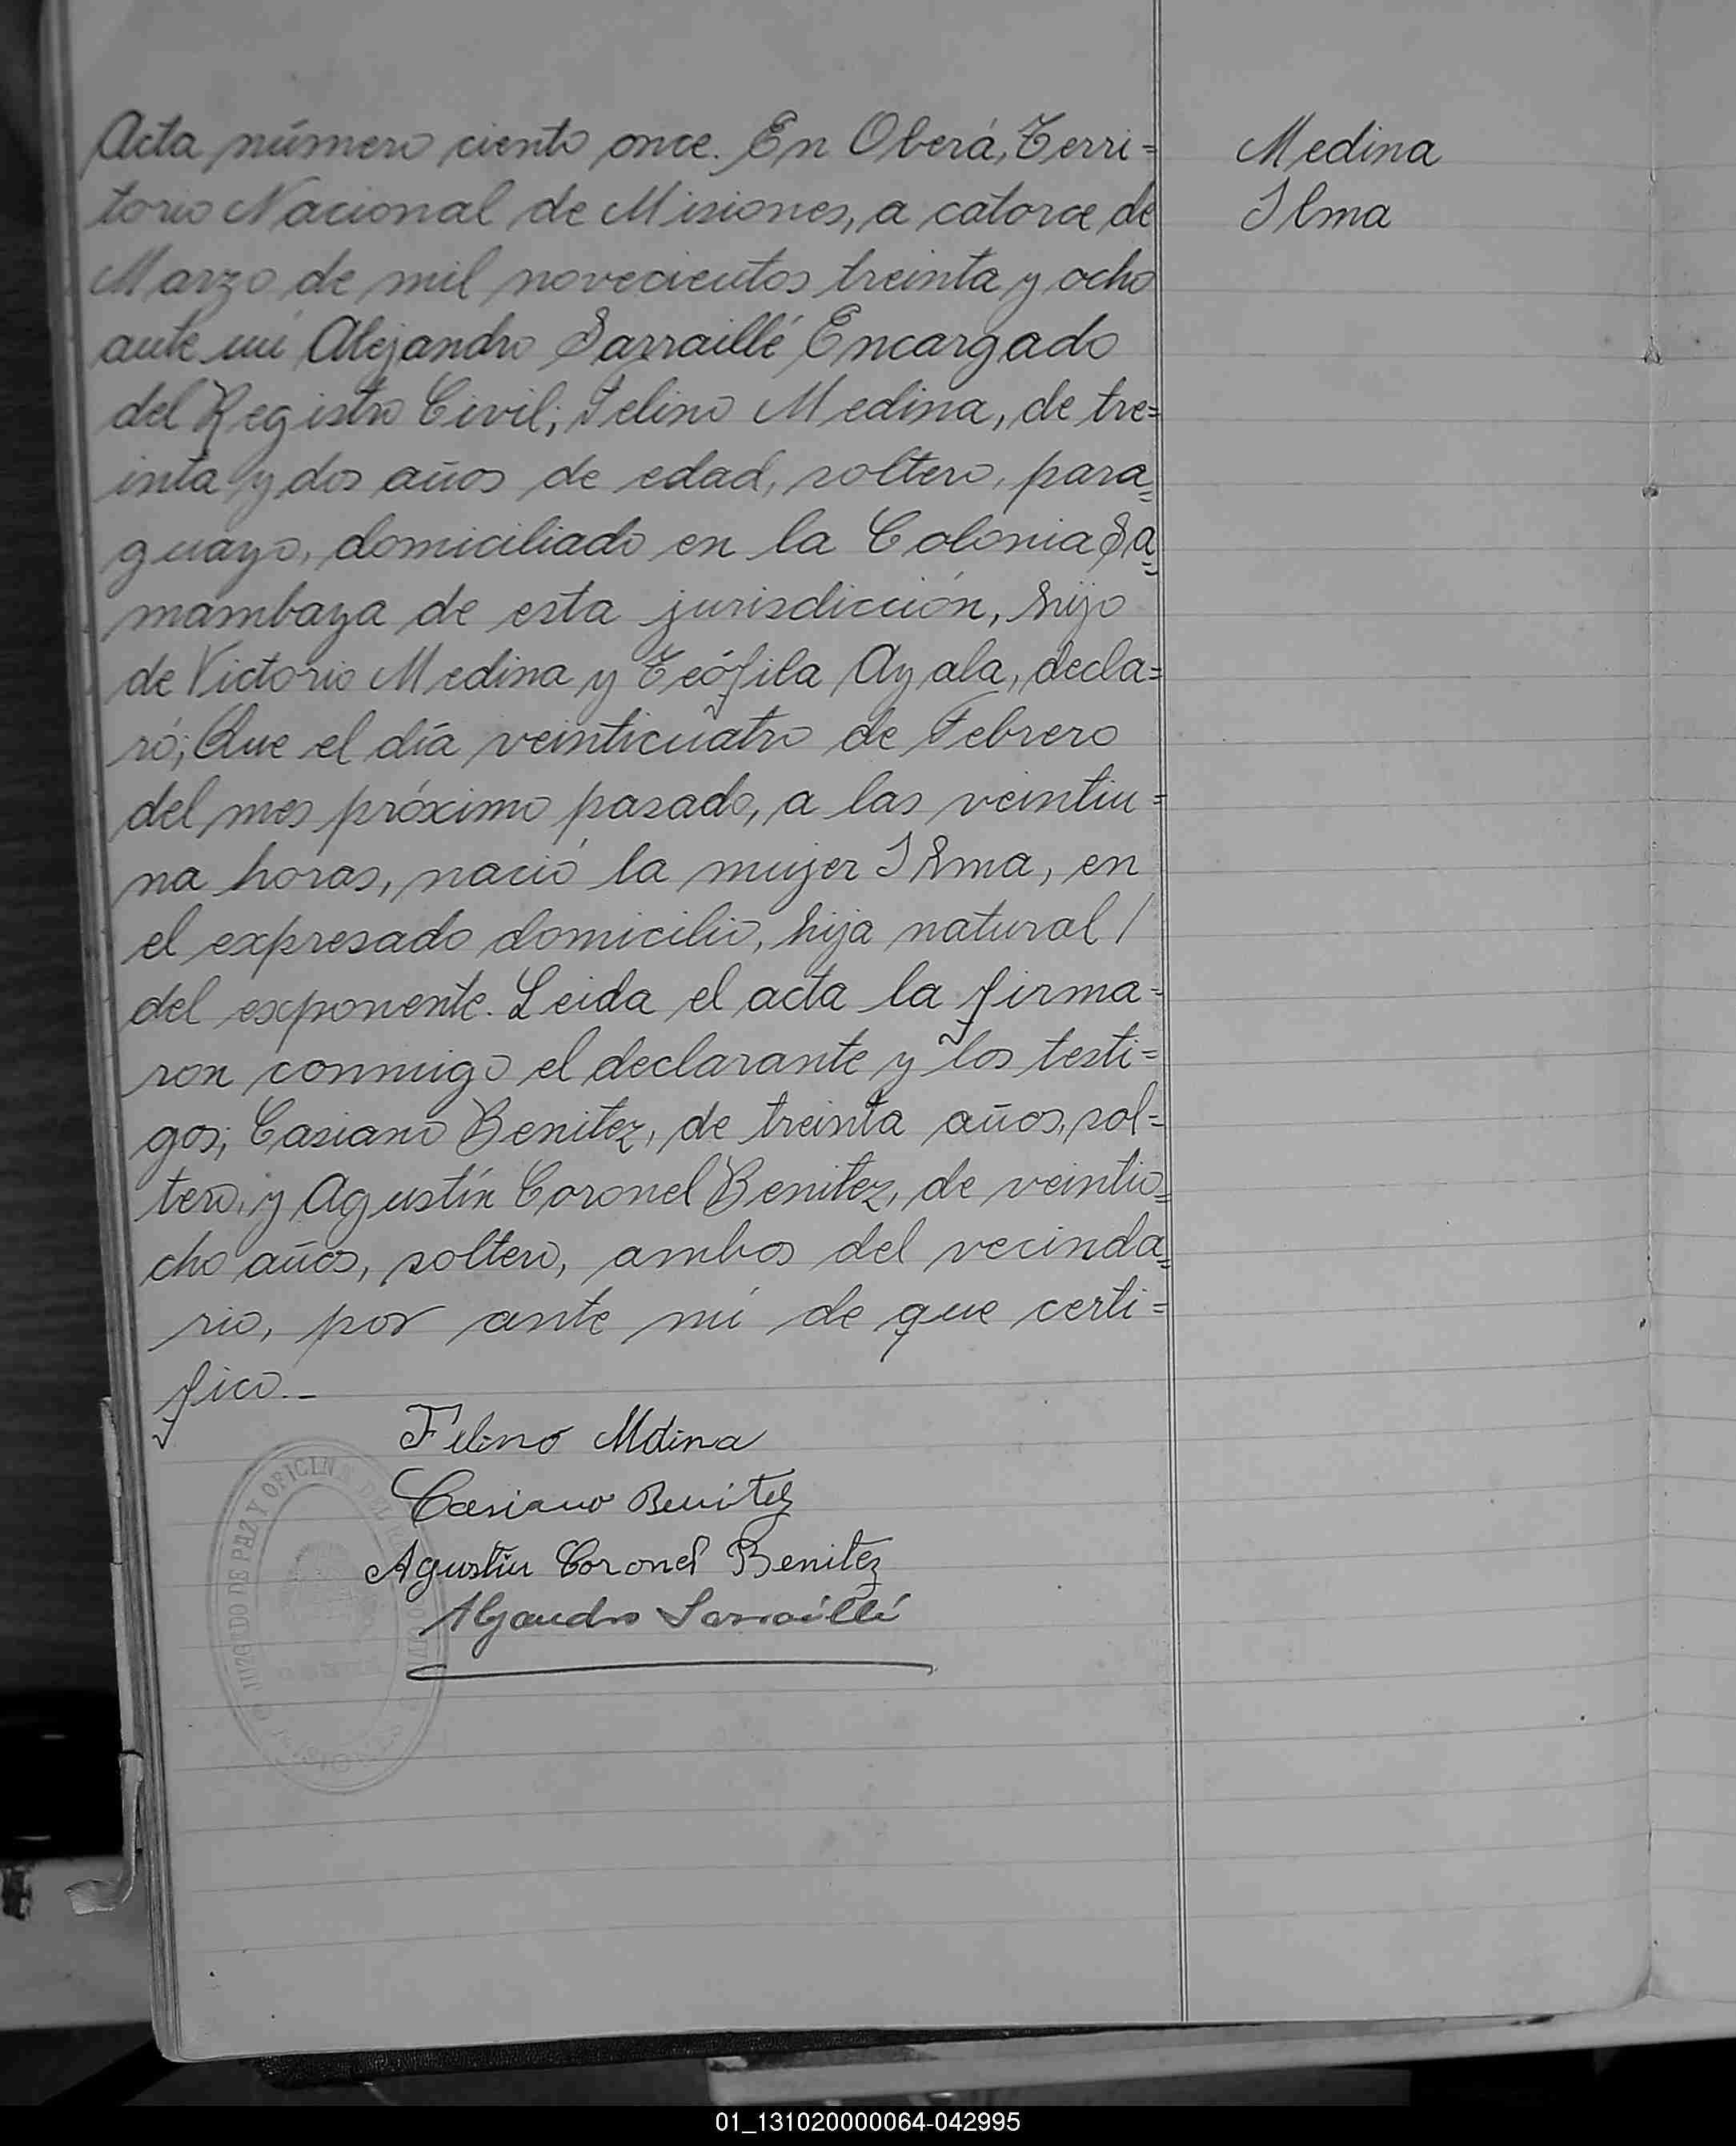 Acta número ciento once. En Oberá, Terri=
torio Nacional de Misiones, a catorce de
Marzo de mil novecientos treinta y ocho
ante mí Alejandro Sarraillé Encargado
del Registro Civil; Felino Medina, de tre=
inta y dos años de edad, soltero, para=
guayo, domiciliado en la Colonia Sa=
mambaya de esta jurisdicción, hijo
de Victorio Medina y Teófila Ayala, decla=
ró; Que el día veinticuatro de Febrero
del mes próximo pasado, a las veintiu=
na horas, nació la mujer Ilma, en
el expresado domicilio, hija natural /
del exponente. Leida el acta la firma=
ron conmigo el declarante y los testi=
gos; Casiano Benitez, de treinta años, sol=
tero, y Agustín Coronel Benitez, de veintio=
cho años, soltero, ambos del vecinda=
rio, por ante mí de que certi=
fico._
Medina
Ilma
Felino Mdina
Casiano Benitez
Agustin Coronel Benitez
Alejandro Sarraillé
JUZGADO DE PAZ Y OFICINA DEL
01_131020000064-042995